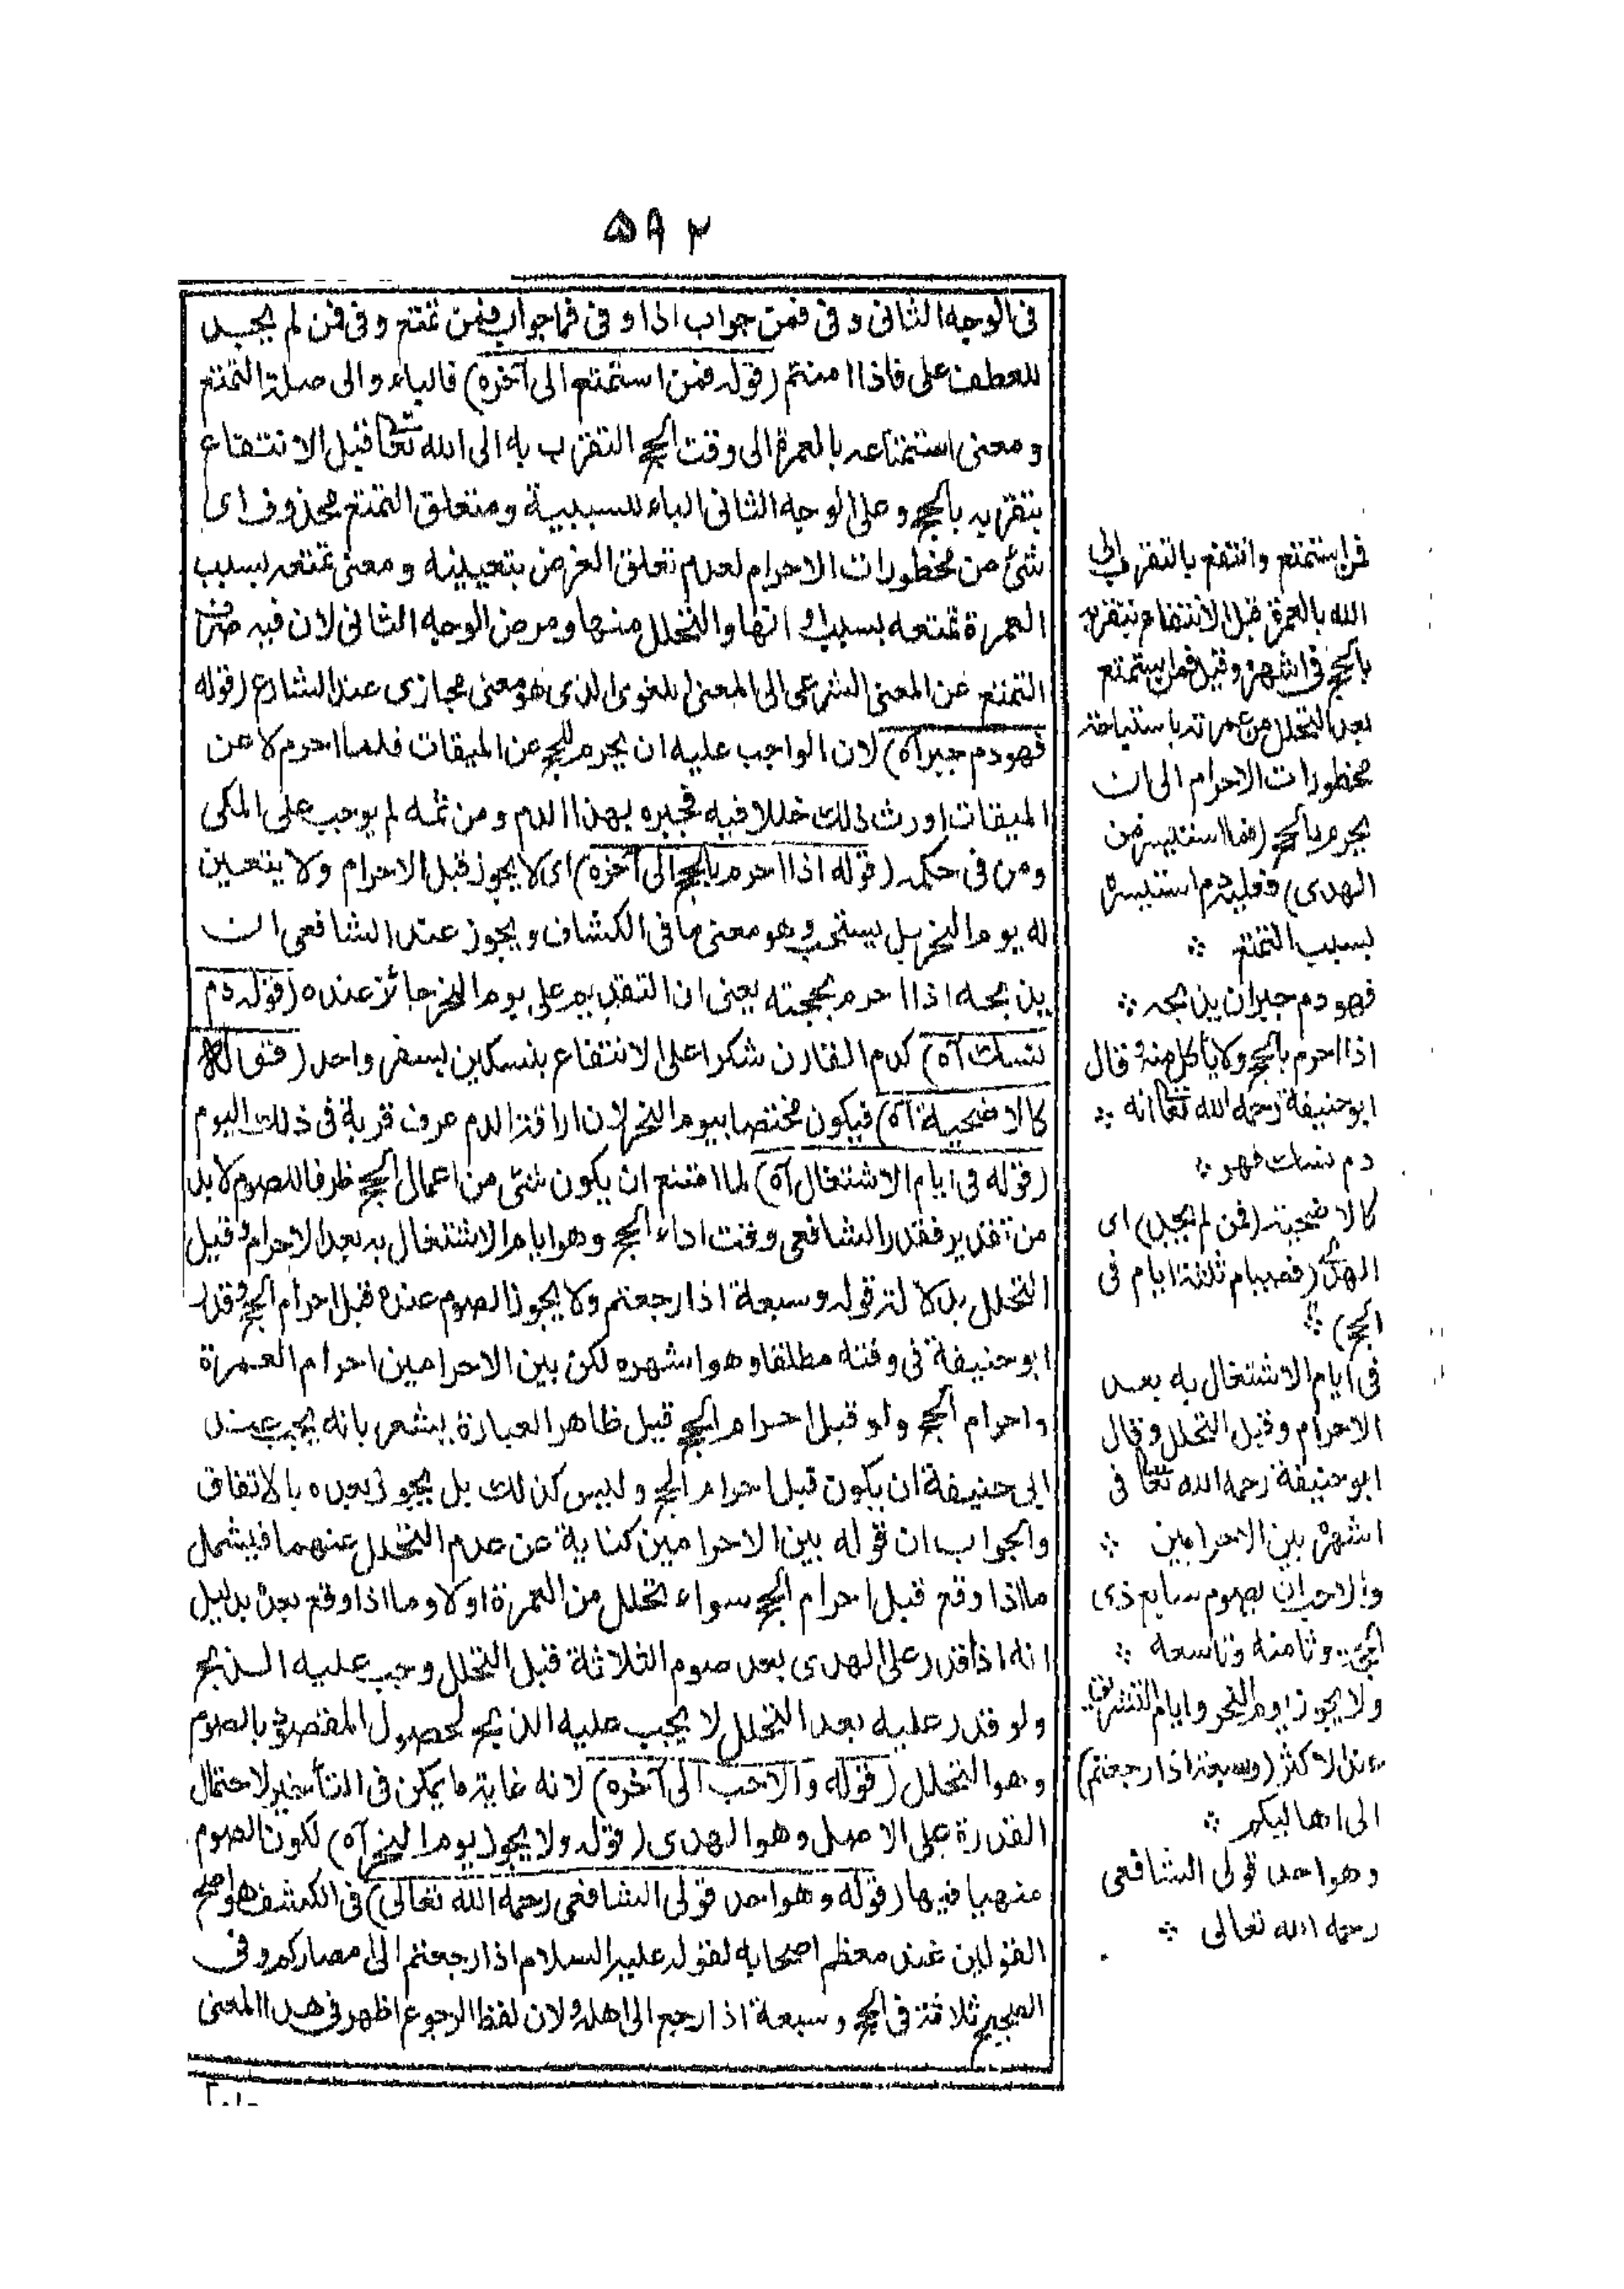 ۵۹۲
فى الوجه الثانى وفى فمن جواب اذا وفى فما جواب فمن تمتع وفى فمن لم يجد
للعطف على فاذا امنتم (قوله فمن استمتع الى آخره) فالباء والى صلة التمتع
ومعنى استمتاعه بالعمرة الى وقت الحج التقرب به الى الله تعالى قبل الانتفاع
بتقربه بالحج وعلى الوجه الثانى الباء للسببية ومتعلق التمتع محذوف اى
شئ من محظورات الاحرام لعدم تعلق الغرض بتعيينه ومعنى تمتعه بسبب
العمرة تمتعه بسبب اوانها والتحلل منها ومرض الوجه الثانى لان فيه صرف
التمتع عن المعنى الشرعى الى المعنى اللغوى الذى هو معنى مجازى عند الشارع (قوله
فهو دم جبر آه) لان الواجب عليه ان يحرم للحج عن الميقات فلما احرم لا عن
الميقات اورث ذلك خللا فيه فجبره بهذا الدم ومن ثمه لم يوجب على المكى
ومن فى حكمه (قوله اذا احرم بالحج الى آخره) اى لا يجوز قبل الاحرام ولا يتعين
له يوم النحر بل يستحب وهو معنى ما فى الكشاف ويجوز عند الشافعى ان
يذبحه اذا احرم بحجته يعنى ان التقديم على يوم النحر جائز عنده (قوله دم
نسك آه) كدم القارن شكرا على الانتفاع بنسكين بسفر واحد (قوله
كالاضحية آه) فيكون مختصا بيوم النحر لان اراقة الدم عرف قربة فى ذلك اليوم
(قوله فى ايام الاشتغال آه) لما امتنع ان يكون شئ من اعمال الحج ظرفا للصوم لابد
من تقدير فقدر الشافعى وقت اداء الحج وهو ايام الاشتغال به بعد الاحرام وقبل
التحلل بدلالة قوله وسبعة اذا رجعتم ولا يجوز الصوم عنده قبل احرام الحج وقدر
ابو حنيفة فى وقته مطلقا وهو اشهره لكن بين الاحرامين احرام العمرة
واحرام الحج ولو قبل احرام الحج قيل ظاهر العبارة يشعر بانه يجب عند
ابى حنيفة ان يكون قبل احرام الحج وليس كذلك بل يجوز بعده بالاتفاق
والجواب ان قوله بين الاحرامين كناية عن عدم التحلل عنهما فيشمل
ما اذا وقع قبل احرام الحج سواء تحلل من العمرة اولا وما اذا وقع بعده بدليل
انه اذا قدر على الهدى بعد صوم الثلاثة قبل التحلل وجب عليه الذبح
ولو قدر عليه بعد التحلل لا يجب عليه الذبح لحصول المقصود بالصوم
وهو التحلل (قوله والاحب الى آخره) لانه غاية ما يمكن فى التأخير لاحتمال
القدرة على الاصل وهو الهدى (قوله ولا يجوز يوم النحر آه) لكون الصوم
منهيا فيها (قوله وهو احد قولى الشافعى رحمه الله تعالى) فى الكشف هو اصح
القولين عند معظم اصحابه لقوله عليه السلام اذا رجعتم الى امصاركم وفى
الصحيح ثلاثة فى الحج وسبعة اذا رجع الى اهله ولان لفظ الرجوع اظهر فى هذا المعنى
فمن استمتع وانتفع بالتقرب الى
الله بالعمرة قبل الانتفاع بتقربه
بالحج فى اشهره وقيل فمن استمتع
بعد التحلل من عمرته باستباحة
محظورات الاحرام الى ان
يحرم بالحج (فما استيسر من
الهدى) فعليه دم استيسره
بسبب التمتع ؞
فهو دم جبران يذبحه ؞
اذا احرم بالحج ولا يأكل منه وقال
ابو حنيفة رحمه الله تعالى انه ؞
دم نسك فهو ؞
كالاضحية (فمن لم يجد) اى
الهدى (فصيام ثلثة ايام فى
الحج) ؞
فى ايام الاشتغال به بعد
الاحرام وقبل التحلل وقال
ابو حنيفة رحمه الله تعالى فى
اشهره بين الاحرامين ؞
والاحب ان يصوم سابع ذى
الحجة وثامنه وتاسعه ؞
ولا يجوز يوم النحر وايام التشريق
عند الاكثر (وسبعة اذا رجعتم)
الى اهاليكم ؞
وهو احد قولى الشافعى
رحمه الله تعالى ؞